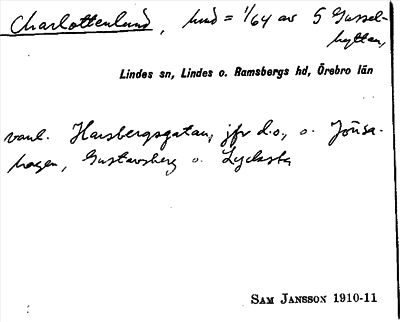 Charlottenlund, hmd = 1/64 av 5 Gussel-
hyttan,
Lindes sn, Lindes o. Ramsbergs hd, Örebro län
vanl. Harsbergsgatan, jfr d.o., o. Jönsa-
hagen, Gustavsberg o. Lycksta
SAM JANSSON 1910-11